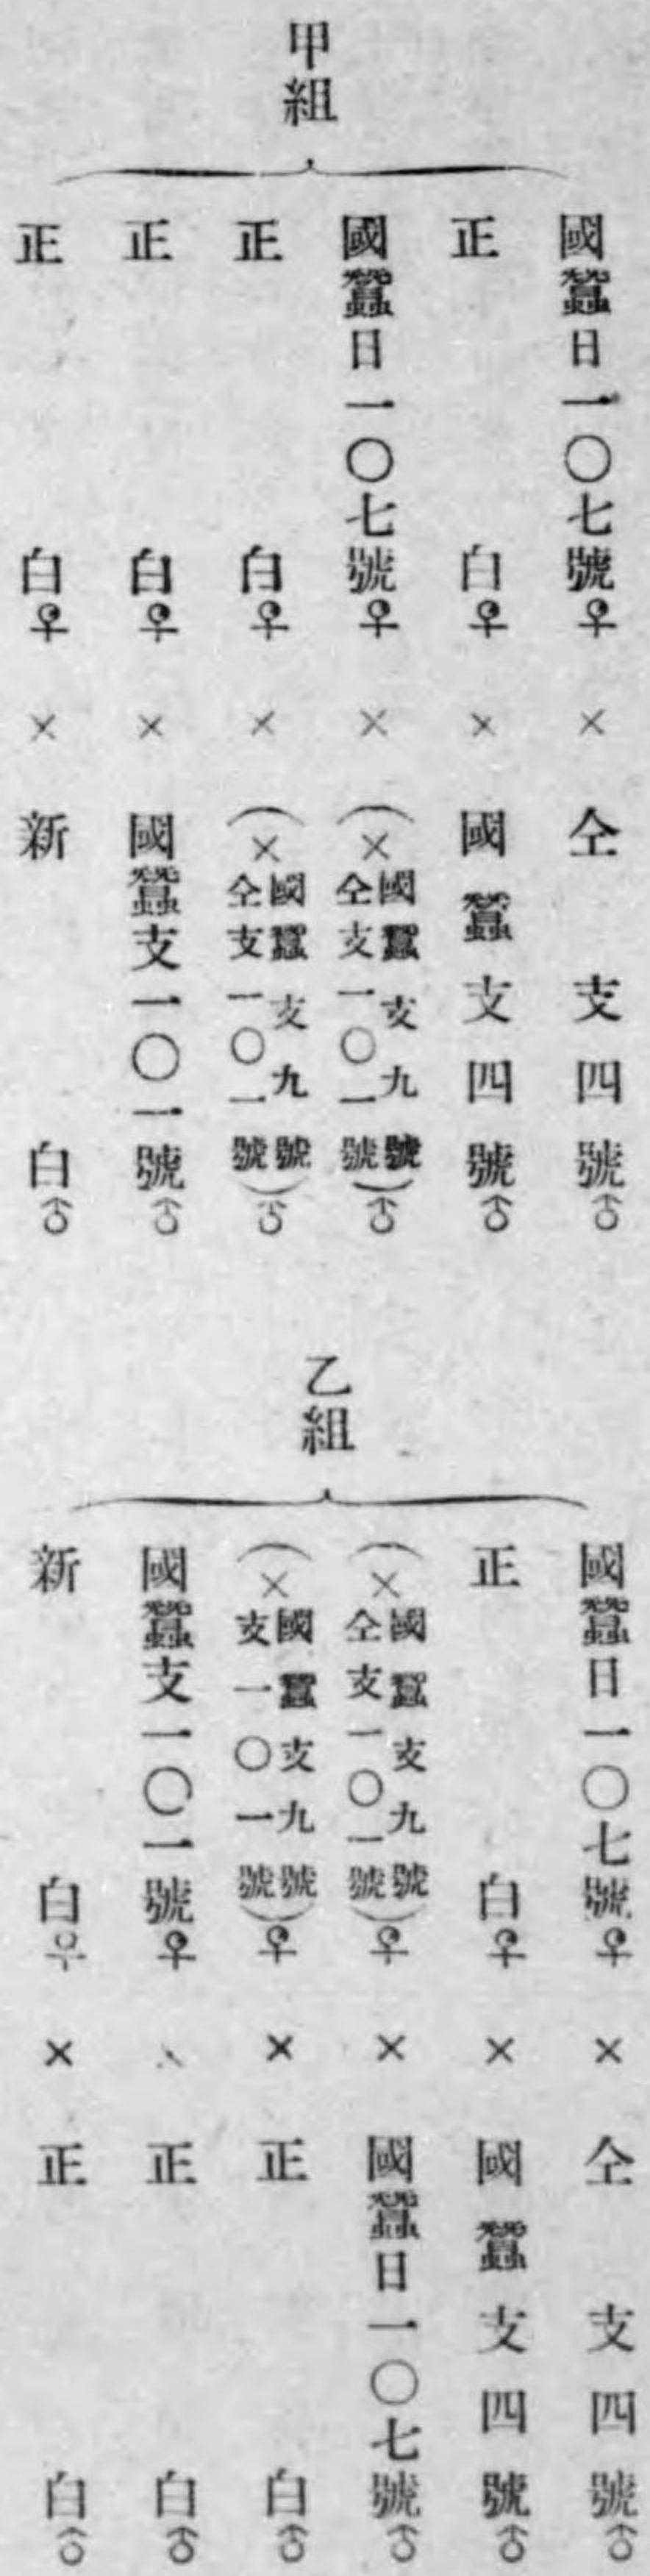 甲組
國蠶日一〇七號♀ × 仝支四號♂
正白♀ × 國蠶支四號♂
國蠶日一〇七號♀ × (國蠶支九號 × 仝支一〇一號)♂
正白♀ × (國蠶支九號 × 仝支一〇一號)♂
正白♀ × 國蠶支一〇一號♂
正白♀ × 新白♂
乙組
國蠶日一〇七號♀ × 仝支四號♂
正白♀ × 國蠶支四號♂
(國蠶支九號 × 仝支一〇一號)♀ × 國蠶日一〇七號♂
(國蠶支九號 × 支一〇一號)♀ × 正白♂
國蠶支一〇一號♀ × 正白♂
新白♀ × 正白♂